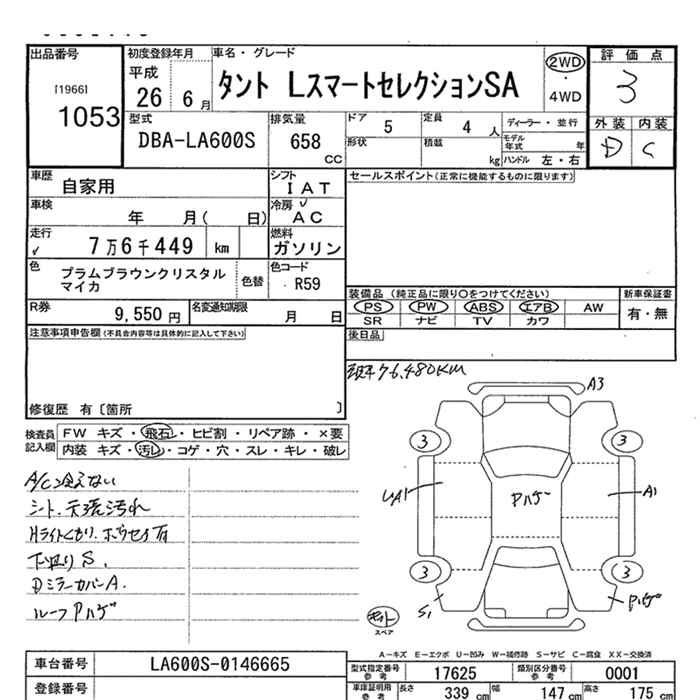 出品番号
[1966]
1053
初度登録年月
平成
26 6月
車名・グレード
タント LスマートセレクションSA
2WD
・
4WD
評価点
3
外装 内装
D C
型式
DBA-LA600S
排気量
658
CC
ドア 5
定員 4 人
形状
積載 kg
ディーラー・並行
モデル年式 年
ハンドル 左・右
車歴
自家用
シフト
IAT
車検
年 月( 日)
冷房
AC
走行
7万6千449 km
燃料
ガソリン
色
プラムブラウンクリスタル
マイカ
色替
色コード
R59
R券 9,550円
名変通知期限
月 日
セールスポイント(正常に機能するものに限ります)
装備品 (純正品に限り○をつけてください)
PS PW ABS エアB AW
SR ナビ TV カワ
新車保証書
有・無
後日品
注意事項申告欄(不具合内容等は具体的に記入して下さい)
修復歴 有〔箇所 〕
検査員
記入欄
FW キズ・飛石・ヒビ割・リペア跡・×要
内装 キズ・汚レ・コゲ・穴・スレ・キレ・破レ
A/C冷えない
シート、天張汚れ
Hライトくもり、ホウセイ有
下廻りS.
DミラーカバーA.
ルーフPハゲ
76,480KM
A3
3
3
A1
Pハゲ
3
3
S1
Pハゲ
キット
スペア
A-キズ E-エクボ U-凹み W-補修跡 S-サビ C-腐食 XX-交換済
車台番号 LA600S-0146665
登録番号
型式指定番号
参考
17625
類別区分番号
参考
0001
車庫証明用
参考
長さ 339 cm
幅 147 cm
高さ 175 cm